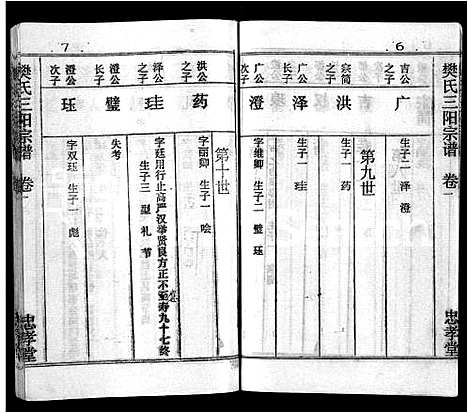 樊氏三阳宗谱 卷一
忠孝堂
6
吉公之子
广
生子二 泽 澄
第九世
宗简之子
洪
生子一 药
广公长子
泽
生子一 珪
广公次子
澄
字维卿 生子二 璧 珏
7
第十世
洪公之子
药
字丽卿 生子一 哙
泽公之子
珪
字廷用行止高严汉举贤良方正不至寿九十七終
生子三 型 礼 节
澄公长子
璧
失考
澄公次子
珏
字双珏 生子一 彪
樊氏三阳宗谱 卷一
忠孝堂